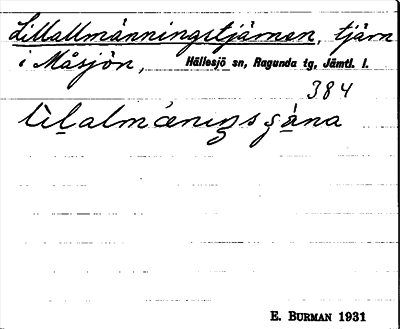 Lillallmänningstjärnen, tjärn
i Måsjön, Hällesjö sn, Ragunda tg, Jämtl. l.
384
E. BURMAN 1931